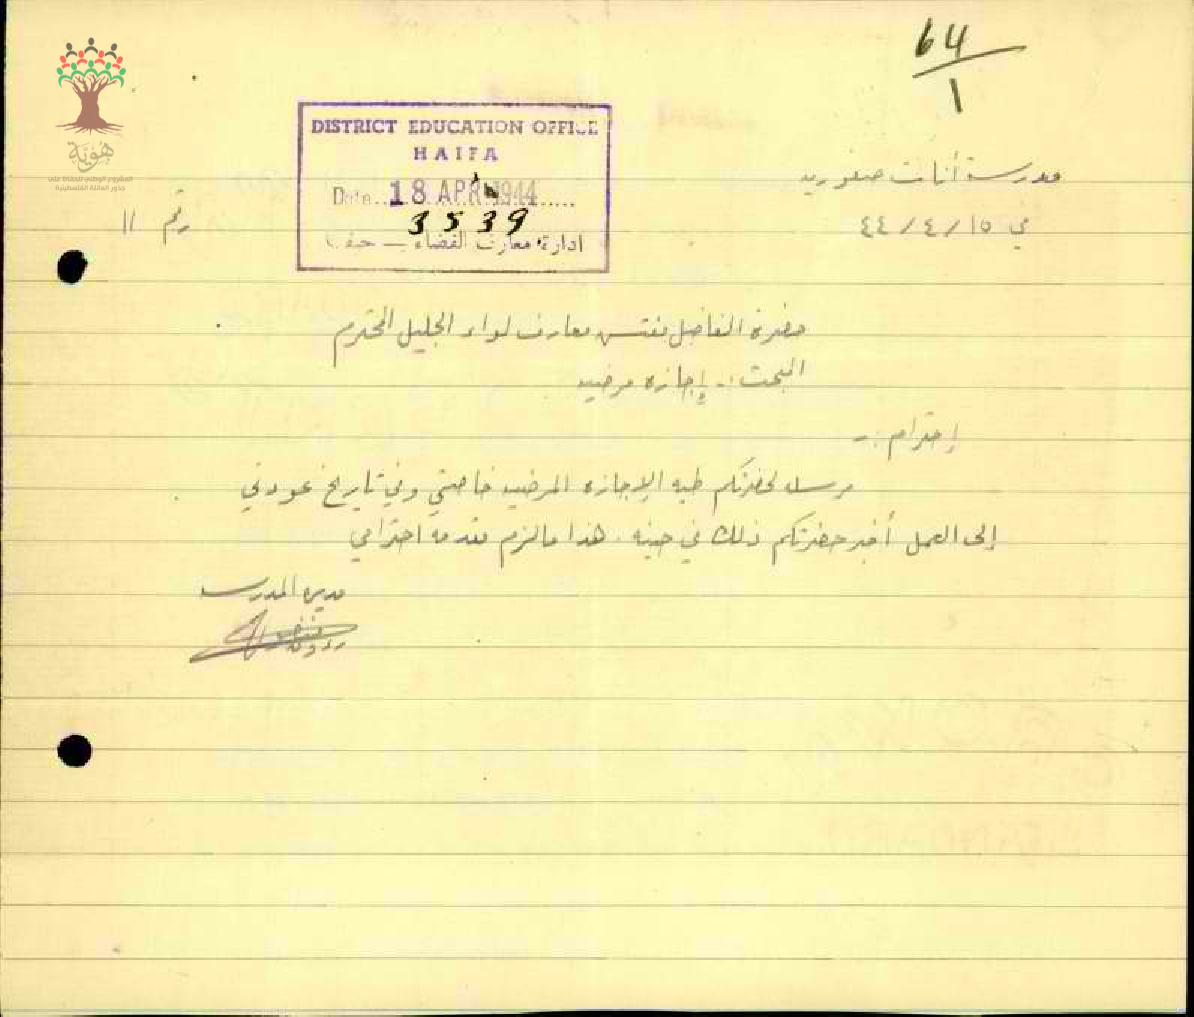 64
1
هوية
المشروع الوطني للحفاظ على
جذور العائلة الفلسطينية
DISTRICT EDUCATION OFFICE
HAIFA
Date 18 APR 1944
3539
ادارة معارف القضاء — حيفا
مدرسة أناث صفوريه
في ١٥ / ٤ / ٤٤
رقم ١١
حضرة الفاضل مفتش معارف لواء الجليل المحترم
البحث :- إجازه مرضيه
إحترام :-
مرسل لحضرتكم طيه الإجازه المرضيه خاصتي وفي تاريخ عودتي
إلى العمل أخبر حضرتكم ذلك في حينه . هذا مالزم تقدمه احترامي
مديرة المدرسه